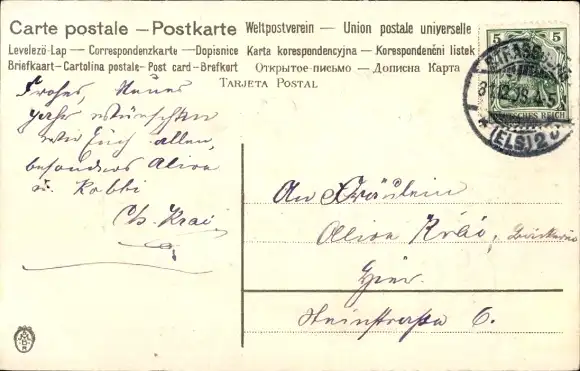 Carte postale — Postkarte Weltpostverein — Union postale universelle
Levelező-Lap — Correspondenzkarte — Dopisnice Karta korespondencyjna — Korespondenční listek
Briefkaart - Cartolina postale - Post card - Brefkort Открытое письмо — Дописна Карта
TARJETA POSTAL
5 5
DEUTSCHES REICH
STRASSBURG
31.12.08.4-5
* (ELS) 2
Frohes, Neues
Jahr wünschen
wir Euch allen,
besonders Alice
u. Robbi
Ch. Krai
An Fräulein
Alice
Hier.
Steinstrasse 6.